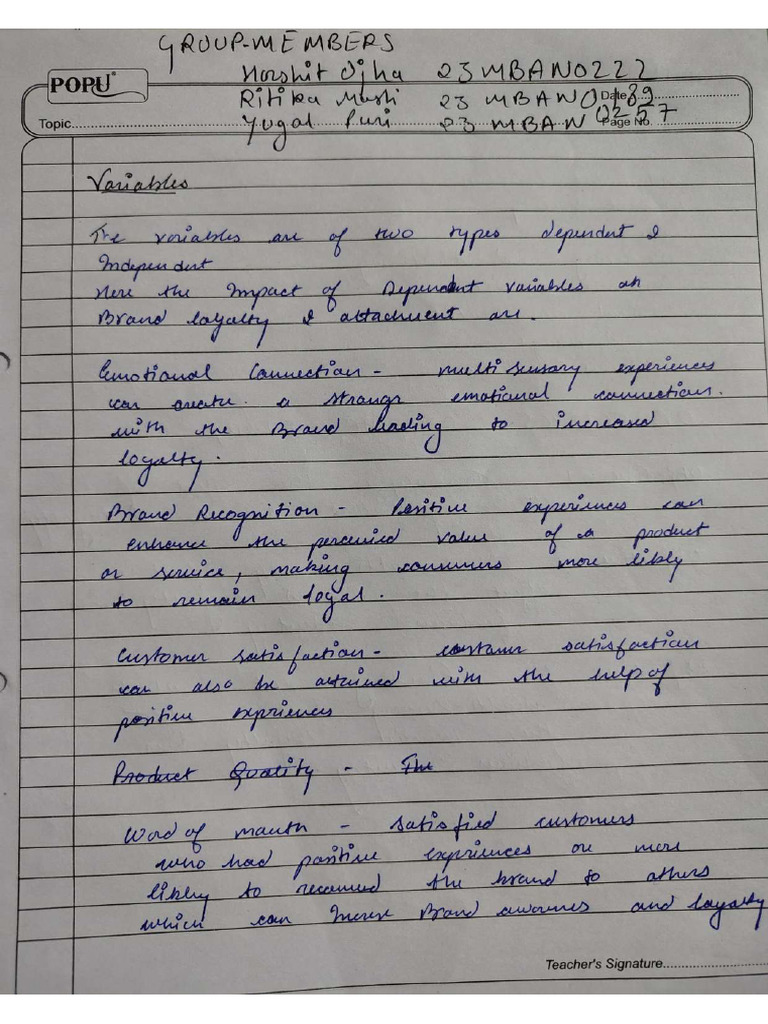 GROUP-MEMBERS
Harshit Ojha 23MBAN0222
POPU
Ritika Mushi 23 MBAN0189
Date
Yugal Puri 23 MBAN 0257
Topic
Page No.
Variables
The variables are of two types dependent &
Independent
Here the Impact of Dependent variables on
Brand loyalty & attachment are.
Emotional Connection - multi sensory experiences
can create a strong emotional connection.
with the Brand leading to increased
loyalty.
Brand Recognition - Positive experiences can
enhance the perceived value of a product
or service, making consumers more likly
to remain loyal.
Customer satisfaction - customer satisfaction
can also be attained with the help of
positive expriences
Product Quality - The
Word of mouth - satisfied customers
who had positive experiences are more
likly to recomend the brand to others
which can Increse Brand awarnes and loyalty
Teacher's Signature